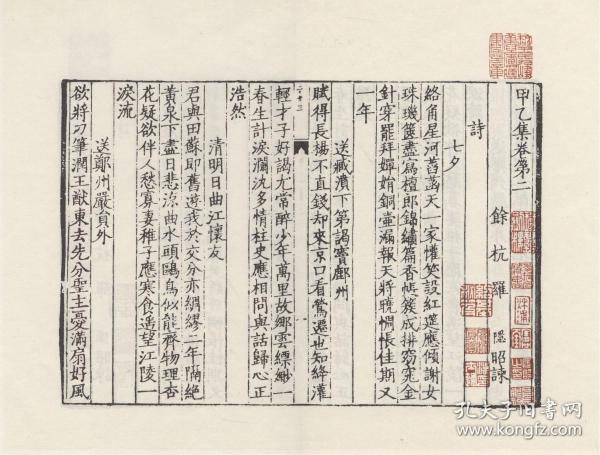 甲乙集卷第二
餘杭羅 隱昭諫
詩
七夕
絡角星河菡萏天一家懽笑設紅筵應傾謝女
珠璣篋盡寫檀郎錦繡篇香帳簇成排窈窕金
針穿罷拜嬋娟銅壺漏報天將曉惆悵佳期又
一年
送臧濆下第謁竇鄜州
賦得長楊不直錢却來京口看鶯遷也知絳灌
輕才子好謁尤常醉少年萬里故鄉雲縹緲一
春生計淚瀾沈多情柱史應相問與話歸心正
浩然
清明日曲江懷友
君與田蘇即舊遊我於交分亦綢繆二年隔絕
黃泉下盡日悲涼曲水頭鷗鳥似能齊物理杏
花疑欲伴人愁寡妻稚子應寒食遥望江陵一
淚流
送鄭州嚴員外
欲將刀筆潤王猷東去先分聖主憂滿扇好風
孔夫子旧书网
www.kongfz.com